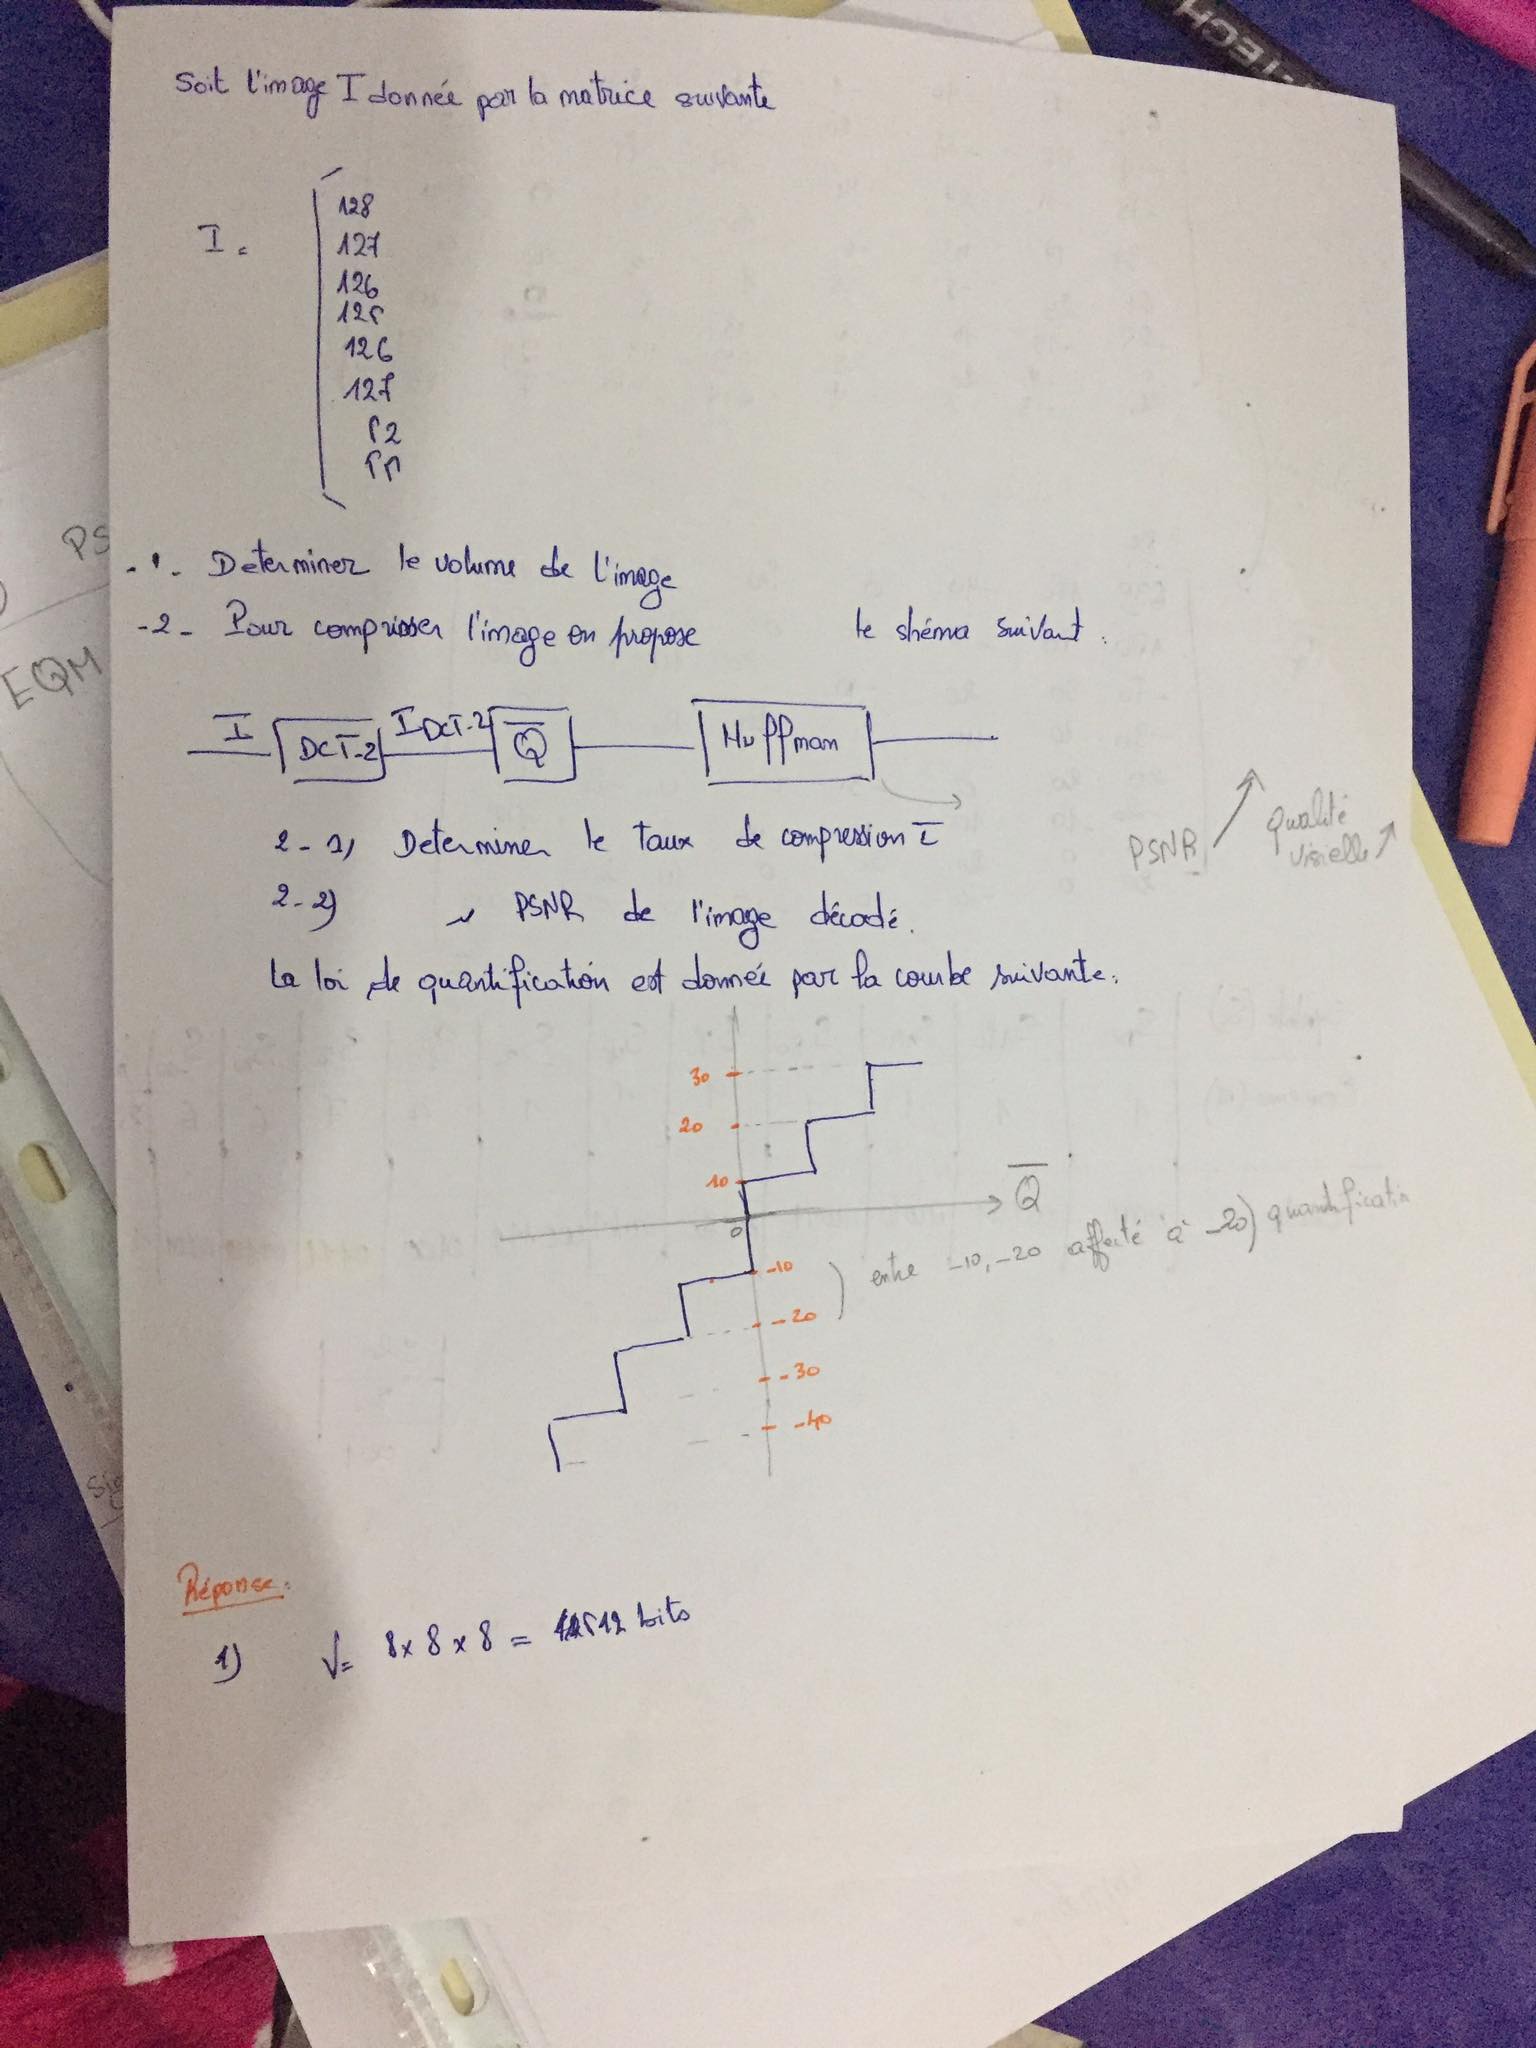 Soit l'image I donnée par la matrice suivante
I =
128
127
126
125
126
127
52
55
-1- Determiner le volume de l'image
-2- Pour comprisser l'image on propose le shéma suivant :
I DCT-2 I DCT-2 Q Huffman
2-1) Determiner le taux de compression I
2-2) " PSNR de l'image décodé.
PSNR qualité
visielle
La loi de quantification est donnée par la courbe suivante :
30
20
10
Q
0
-10
entre -10, -20 affecté à -20) quantification
-20
-30
-40
Réponse :
1) V = 8x8x8 = 512 bits
PS
EQM
TECH